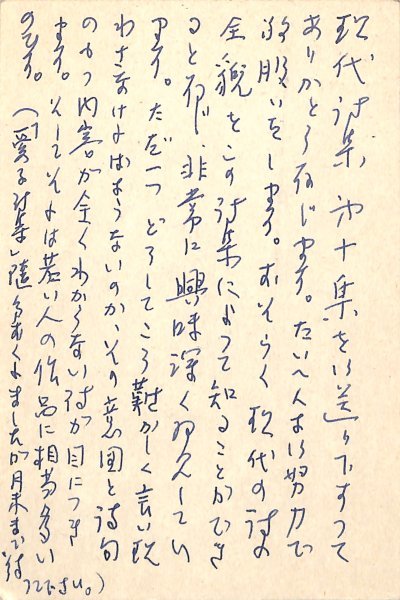 現代詩集第十集をお送り下すって
ありがとう存じます。たいへんな御努力で
敬服いたします。おそらく現代の詩の
全貌をこの詩集によって知ることができ
ると存じ、非常に興味深く拝見してい
ます。ただ一つどうしてこう難かしく言い現
わさなければならないのか、その意図と詩句
のもつ内容が全くわからない詩が目につき
ます。そしてそれは若い人の作品に相当多い
のです。
(「愛子詩集」随 ましたが月末まで待って下さい。)